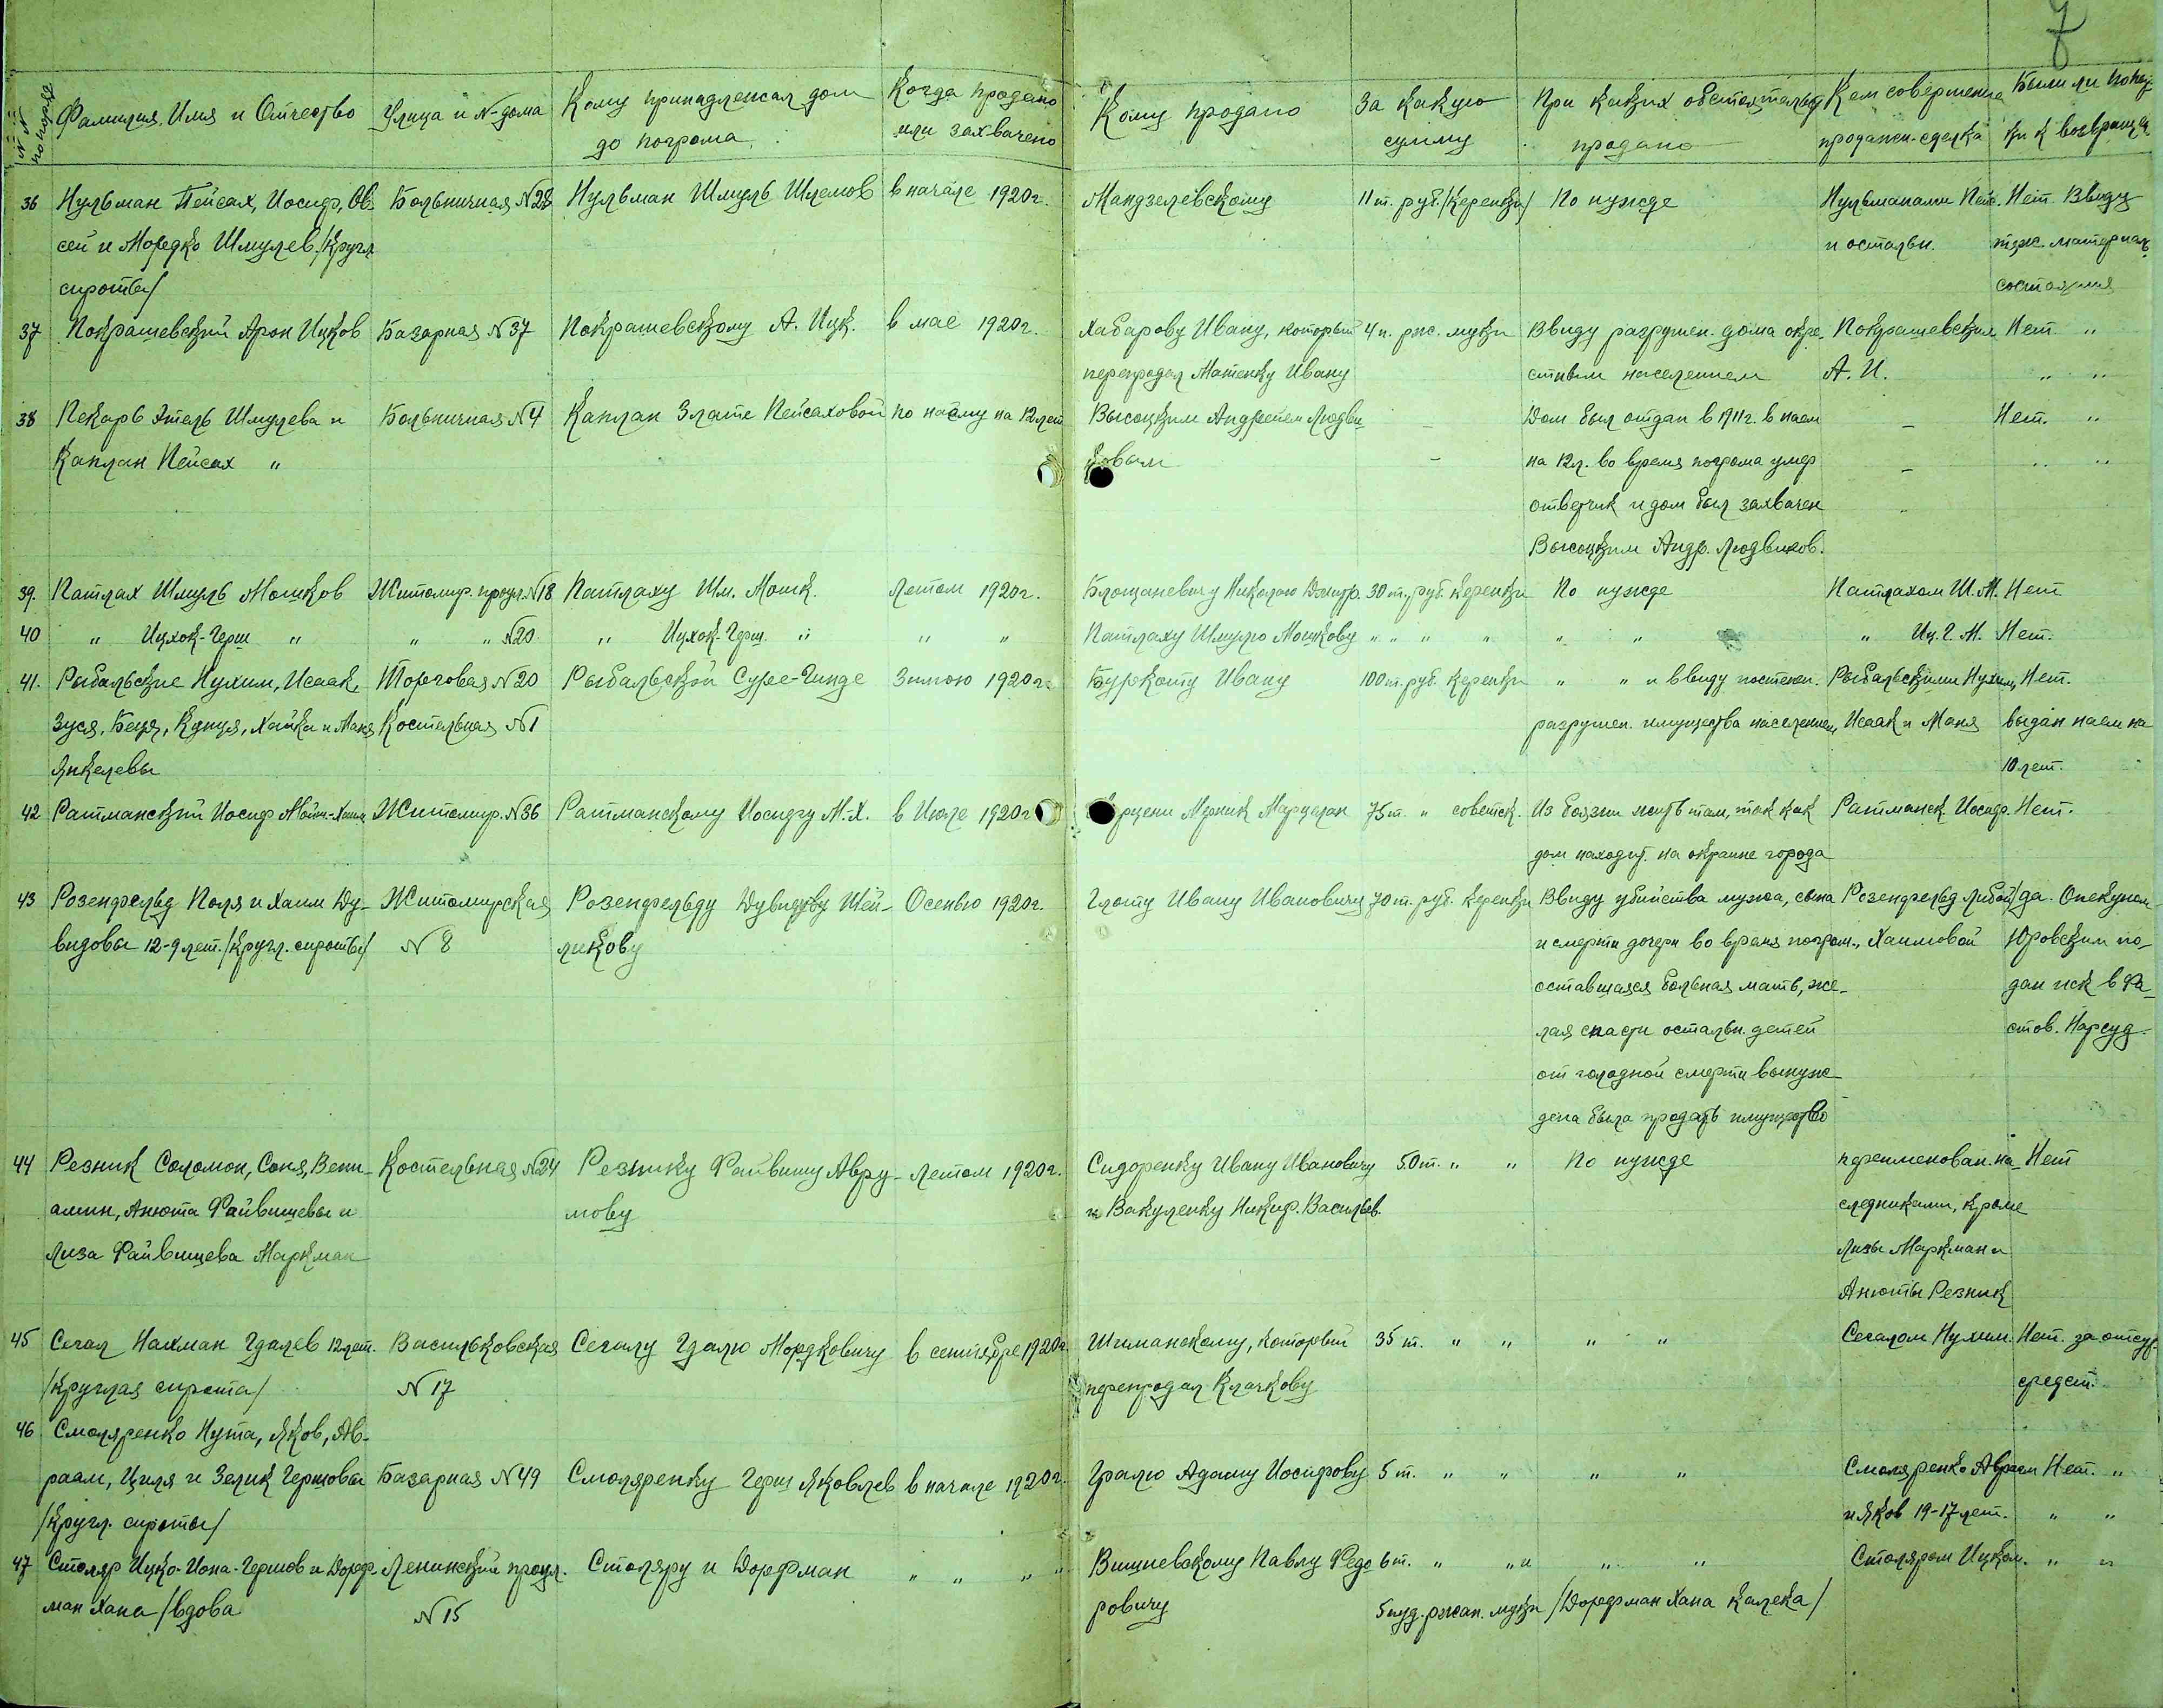 7
№ № по поряд. Фамилия, Имя и Отчество Улица и №-дома Кому принадлежал дом до погрома Когда продано или захвачено Кому продано За какую сумму При каких обстоятельст. продано Кем совершена продажн-сделка Были ли попыт-ки к возвращен.
36 Нульман Пейсах, Иосиф, Ов- Больничная №28 Нульман Шмуль Шлемов в начале 1920г. Мандзелевскому 11 т. руб. /керенки/ По нужде Нульманами Пейс. Нет. Ввиду
сей и Мордко Шмулев. /кругл. и остальн. тяж. материал.
сироты/ состояния
37 Покрашевский Арон Ицков Базарная №37 Покрашевскому А. Ицк. в мае 1920г. Хабарову Ивану, который 4 п. рж. муки Ввиду разрушен. дома окре- Покрашевским Нет. "
перепродал Матенку Ивану стным населением А. И. " "
38 Пекарь Этель Шмулева и Больничная №4 Каплан Злате Пейсаховой по найму на 12 лет Высоцким Андреем Людви- - Дом был отдан в 1911г. в наем - Нет. "
Каплан Пейсах " ковым - на 12л. во время погрома умер - " "
ответчик и дом был захвачен -
Высоцким Андр. Людвиков.
39. Патлах Шмуль Мошков Житомир. проул. №18 Патлаху Шм. Мошк. Летом 1920г. Блощаневичу Николаю Дмитр. 30 т. руб. керенки По нужде Патлахом Ш. М. Нет
40 " Ицхок-Герш " " " №20 " Ицхок-Герш. " " " Патлаху Шмулю Мошкову " " " " " " " Иц. Г. М. Нет.
41. Рыбальские Нухим, Исаак, Торговая №20 Рыбальской Суре-Гинде Зимою 1920г. Буркоту Ивану 100 т. руб. керенки " " и ввиду постепен. Рыбальскими Нухим, Нет.
Зуся, Беця, Куция, Хайка и Маня Костельная №1 разрушен. имущества населением Исаак и Маня выдан наем на
Янкелевы 10 лет.
42 Ратманский Иосиф Мойш.-Хаим Житомир. №36 Ратманскому Иосифу М.-Х. в Июле 1920г. Мерник Марцелан 75 т. " советск. Из боязни жить там, так как Ратманск. Иосиф. Нет.
дом находит. на окраине города
43 Розенфельд Поля и Хаим Ду- Житомирская Розенфельду Дувидову Шей- Осенью 1920г. Глоту Ивану Ивановичу 70 т. руб. керенки Ввиду убийства мужа, сына Розенфельд Либой да. Опекуном
видовы 12-9 лет. /кругл. сироты/ №8 ликову и смерти дочери во время погром., Хаимовой Юровским по-
оставшаяся больная мать, же- дан иск в Фа-
лая спасти остальн. детей стов. Нарсуд.
от голодной смерти вынуж-
дена была продать имущество
44 Резник Соломон, Соня, Вени- Костельная №24 Резнику Файвишу Авру- Летом 1920г. Сидоренку Ивану Ивановичу 50 т. " " По нужде переименован. на- Нет
амин, Анюта Файвишевы и мову и Вакуленку Никиф. Васильев. следниками, кроме
Лиза Файвишева Маркман Лизы Маркман и
Анюты Резник
45 Сегал Нахман Гдалев 12 лет. Васильковская Сегалу Гдалю Мордковичу в сентябре 1920г. Шиманскому, который 35 т. " " " " Сегалом Нухим. Нет. за отсут.
/круглая сирота/ №17 перепродал Клачкову средст.
46 Смоляренко Нута, Яков, Ав-
раам, Циля и Зелик Гершовы Базарная №49 Смоляренку Герш Яковлев в начале 1920г. Гралю Адаму Иосифову 5 т. " " " " Смоляренко Авраам Нет. "
/Кругл. сироты/ и Яков 19-17 лет. " "
47 Столяр Ицко-Иона-Гершов и Дорф- Ленинский проул. Столяру и Дорфман " " " " Вишневскому Павлу Федо- 6 т. " " и " " Столяром Ицком. " "
ман Хана /вдова №15 ровичу 5 пуд. ржан. муки /Дорфман Хана калека/